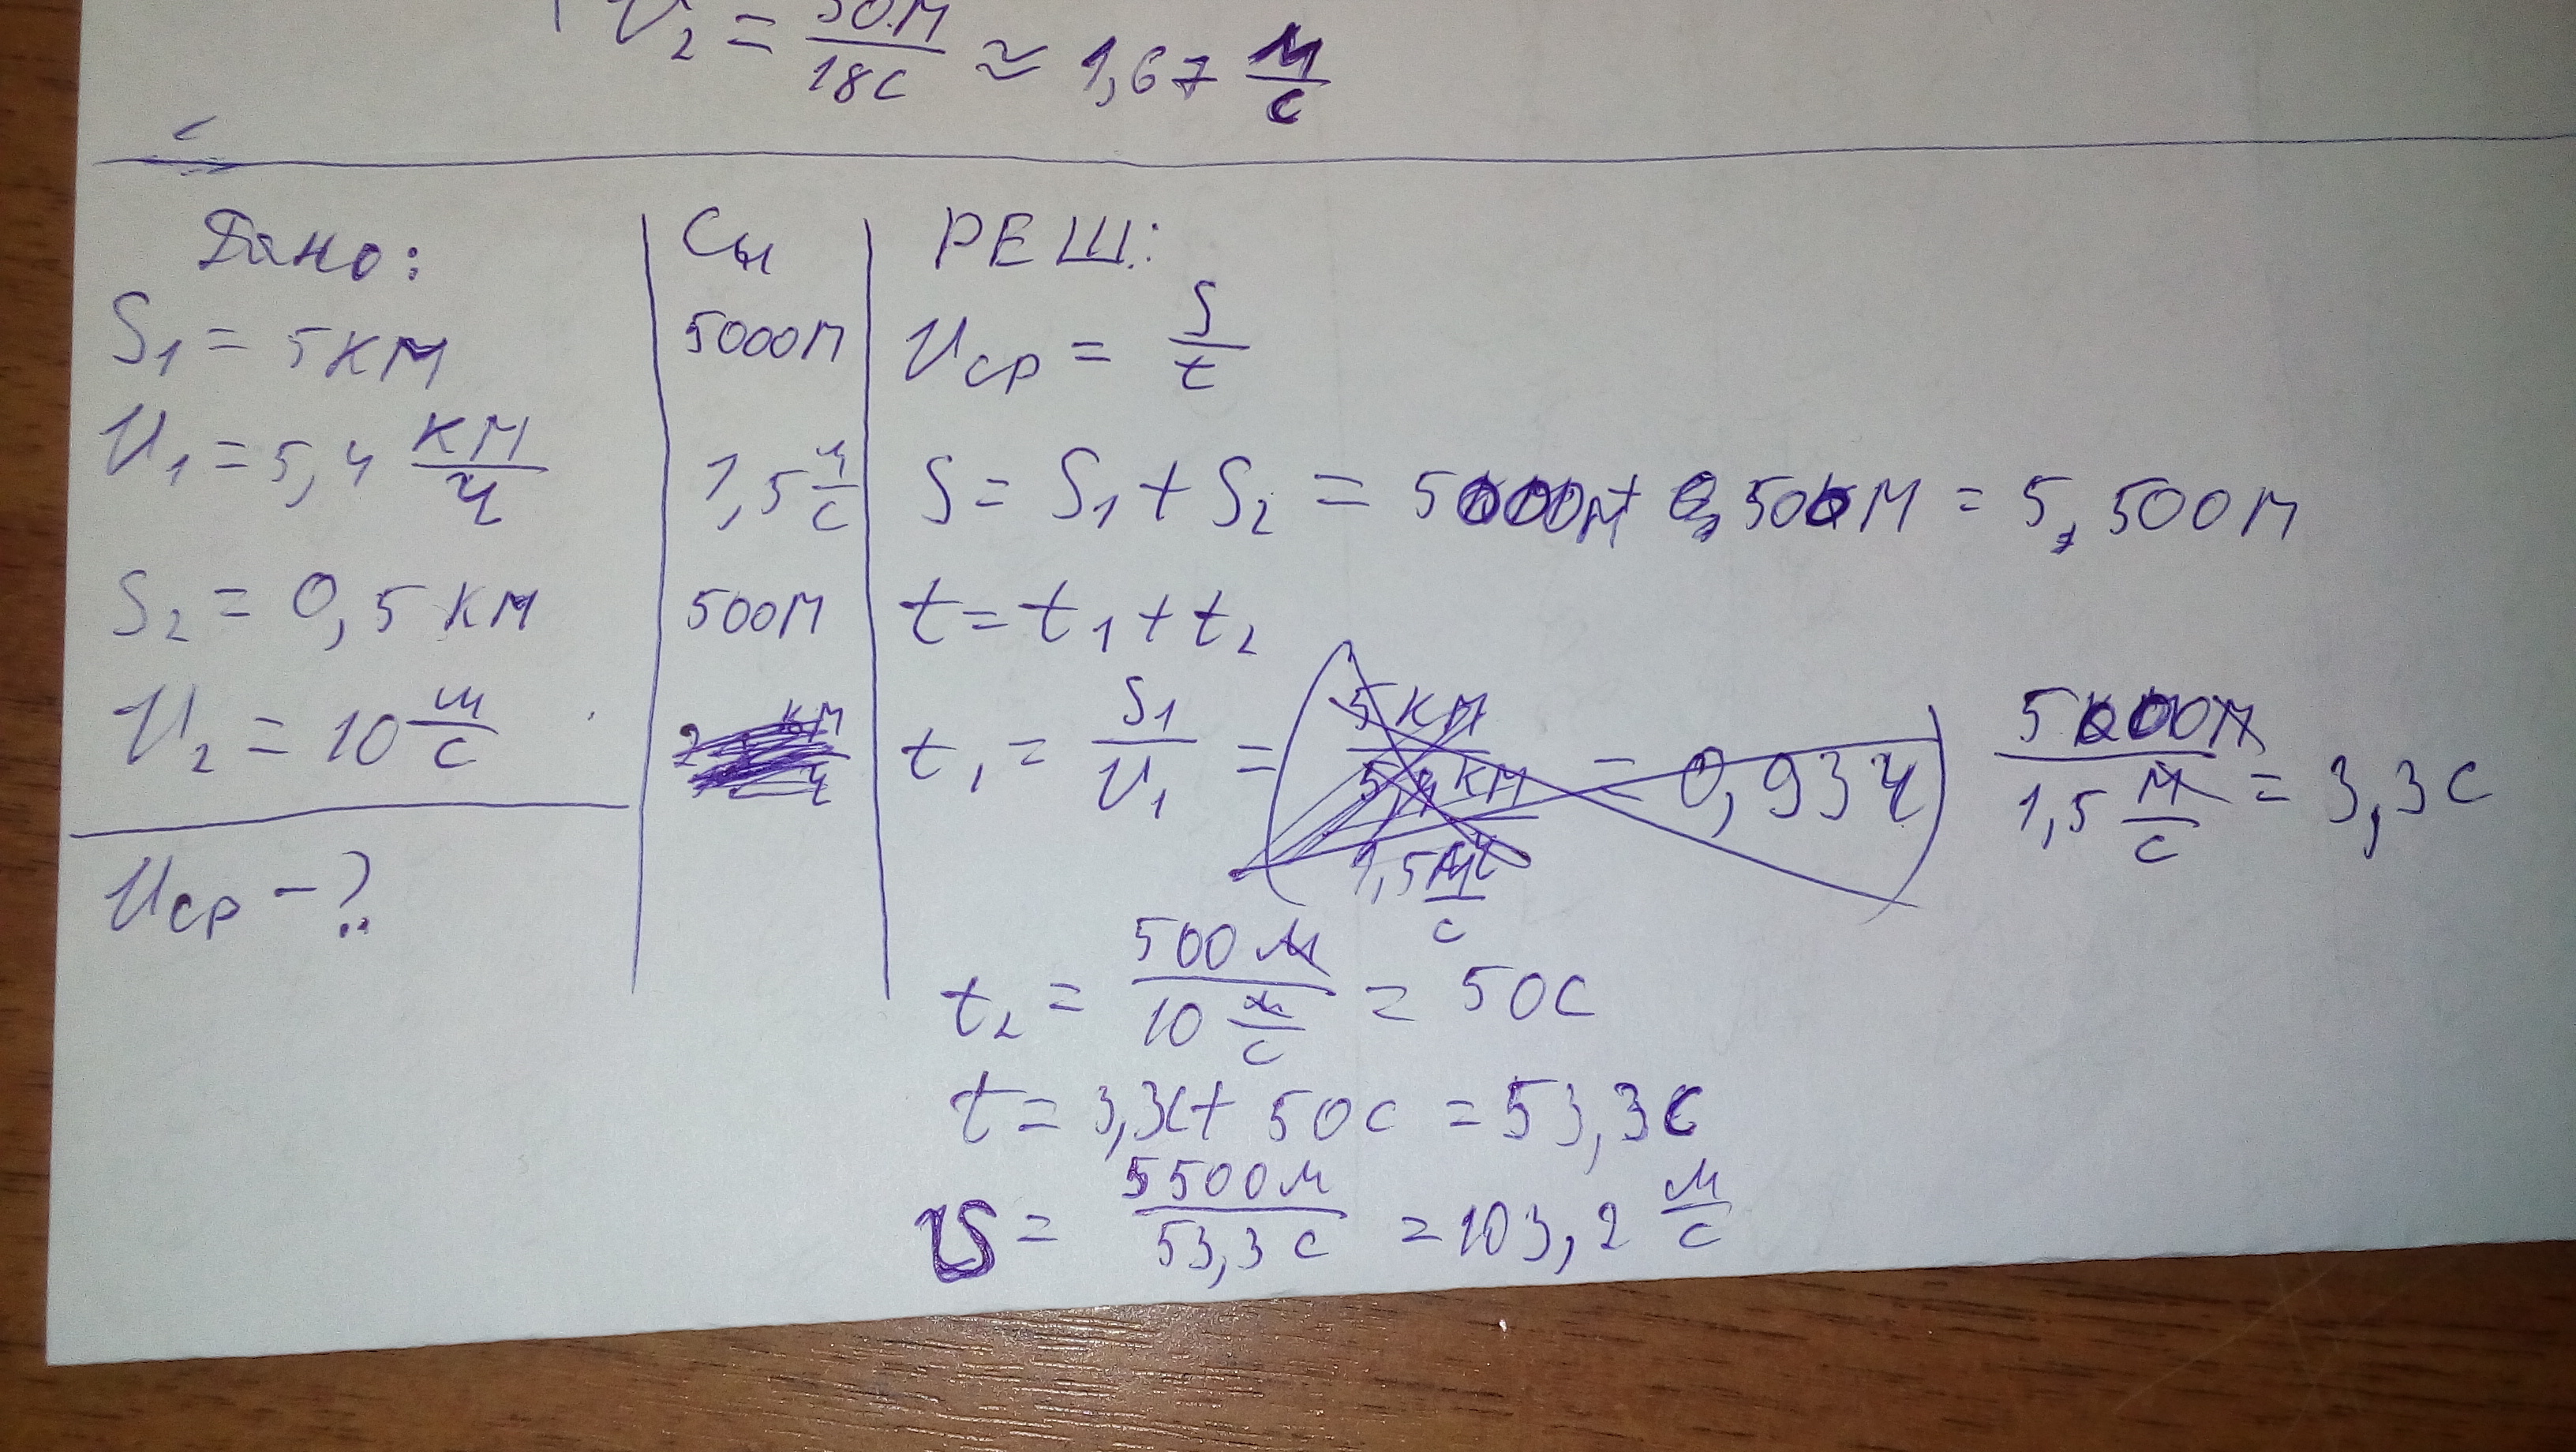 V₂ = 30м/18с ≈ 1,67 м/с
Дано:
S₁ = 5 км
V₁ = 5,4 км/ч
S₂ = 0,5 км
V₂ = 10 м/с
Vср - ?
Си
5000м
1,5 м/с
500м
РЕШ:
Vср = S/t
S = S₁ + S₂ = 5000м + 500м = 5500м
t = t₁ + t₂
t₁ = S₁/V₁ = (5 км/5,4 км/ч = 0,93ч) 5000м/1,5 м/с = 3,3с
1,5 м/с
t₂ = 500 м/10 м/с = 50с
t = 3,3с + 50с = 53,3с
V = 5500м/53,3с = 103,2 м/с